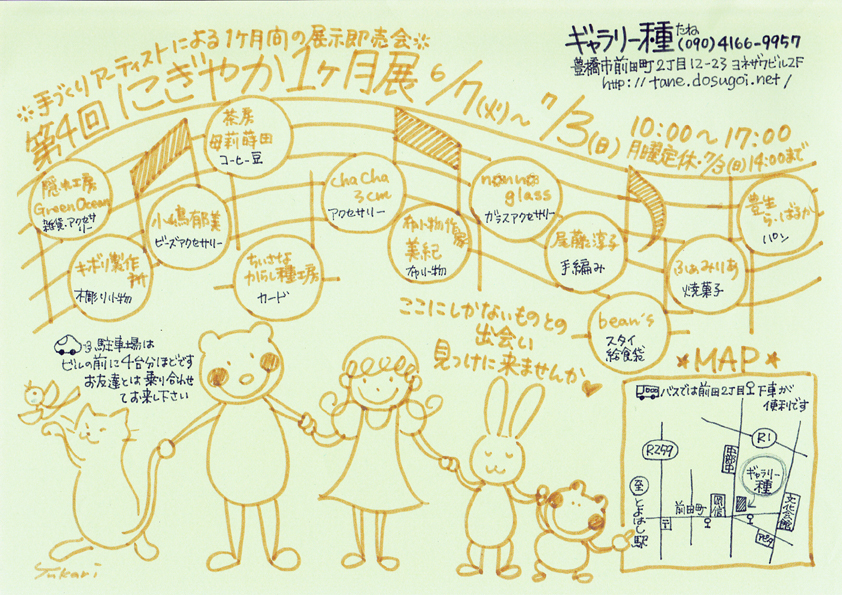 ※手づくりアーティストによる1ヶ月間の展示即売会※
第4回 にぎやか1ヶ月展 6/7(火)〜7/3(日)
10:00〜17:00
月曜定休・7/3(日)14:00まで
ギャラリー種 たね
(090)4166-9957
豊橋市前田町2丁目12-23 ヨネザワビル2F
http://tane.dosugoi.net/
隠れ工房
Green Ocean
雑貨・アクセサリー
茶房
母莉蒔田
コーヒー豆
小嶋郁美
ビーズアクセサリー
キボリ製作所
木彫り小物
ちいさな
からし種工房
カード
chaCha
3cm
アクセサリー
布小物作家
美紀
布小物
nonno
glass
ガラスアクセサリー
尾藤淳子
手編み
bean's
スタイ
給食袋
ふぁみりあ
焼菓子
豊生
ら・ばるか
パン
ここにしかないものとの
出会い
見つけに来ませんか
駐車場は
ビルの前に4台分ほどです
お友達とは乗り合わせ
てお来し下さい
★MAP★
バスでは前田2丁目下車が
便利です
R1
R259
中部中
ギャラリー
種
至
とよはし駅
前田町
岡信
文化会館
アピタ
Yukari